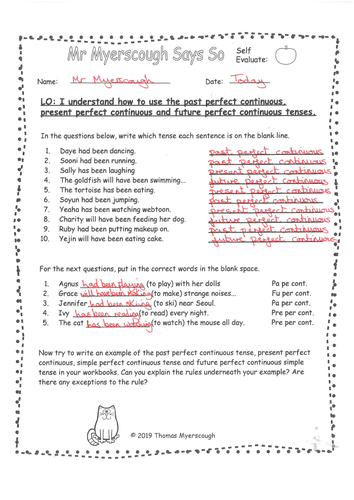 Mr Myerscough Says So
Self
Evaluate:
Name: Mr Myerscough Date: Today
LO: I understand how to use the past perfect continuous,
present perfect continuous and future perfect continuous tenses.
In the questions below, write which tense each sentence is on the blank line.
1. Daye had been dancing. past perfect continuous
2. Sooni had been running. past perfect continuous
3. Sally has been laughing present perfect continuous
4. The goldfish will have been swimming... future perfect continuous
5. The tortoise has been eating. present perfect continuous
6. Soyun had been jumping. past perfect continuous
7. Yeaha has been watching webtoon. present perfect continuous
8. Charity will have been feeding her dog. future perfect continuous
9. Ruby had been putting makeup on. past perfect continuous
10. Yejin will have been eating cake. future perfect continuous
For the next questions, put in the correct words in the blank space.
1. Agnus had been playing (to play) with her dolls Pa pe cont.
2. Grace will have been making (to make) strange noises... Fu per cont.
3. Jennifer had been skiing (to ski) near Seoul. Pa per cont.
4. Ivy has been reading (to read) every night. Pre per cont.
5. The cat has been watching (to watch) the mouse all day. Pre per cont.
Now try to write an example of the past perfect continuous tense, present perfect
continuous, simple perfect continuous tense and future perfect continuous simple
tense in your workbooks. Can you explain the rules underneath your example? Are
there any exceptions to the rule?
© 2019 Thomas Myerscough